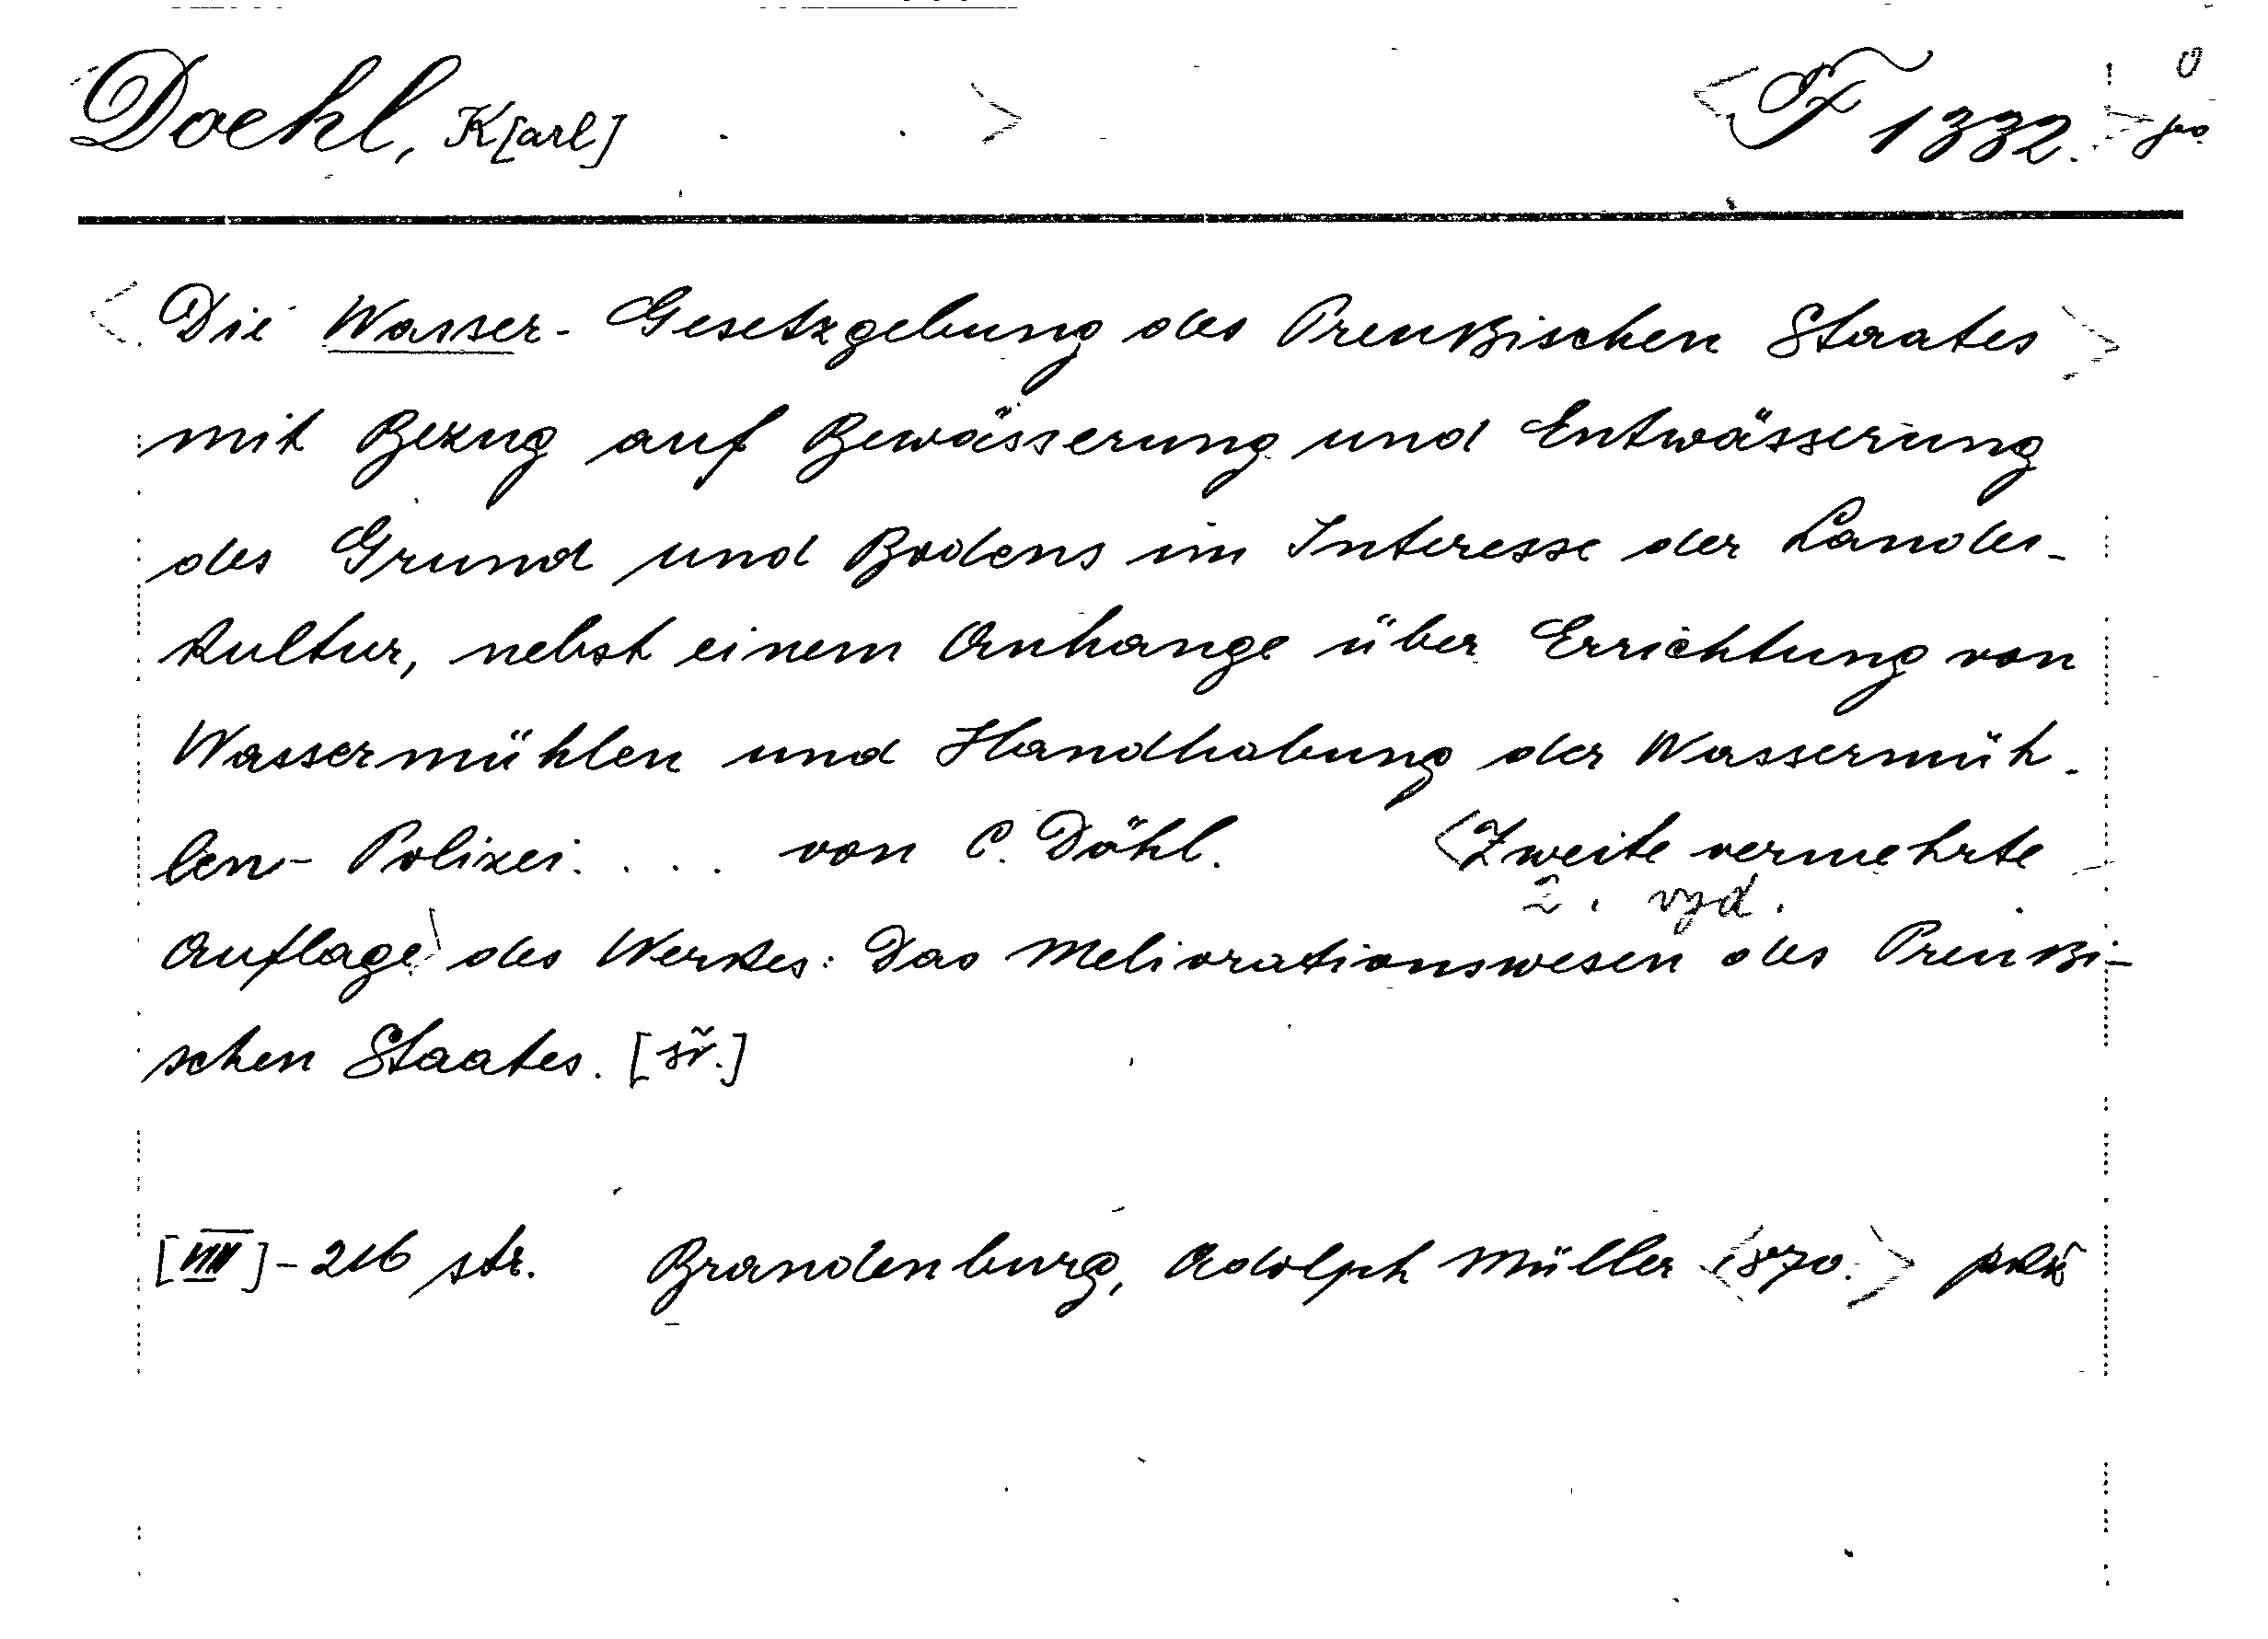 Doehl, K[arl] F 1332.
Die Wasser-Gesetzgebung des Preußischen Staates
mit Bezug auf Bewässerung und Entwässerung
des Grund und Bodens im Interesse der Landes-
kultur, nebst einem Anhange über Errichtung von
Wassermühlen und Handhabung der Wassermüh-
len-Polizei.... von C. Döhl. Zweite vermehrte
2. vyd.
Auflage des Werkes: Das Meliorationswesen des Preußi-
schen Staates. [šv.]
[VIII]-216 str. Brandenburg, Adolph Müller 1870.